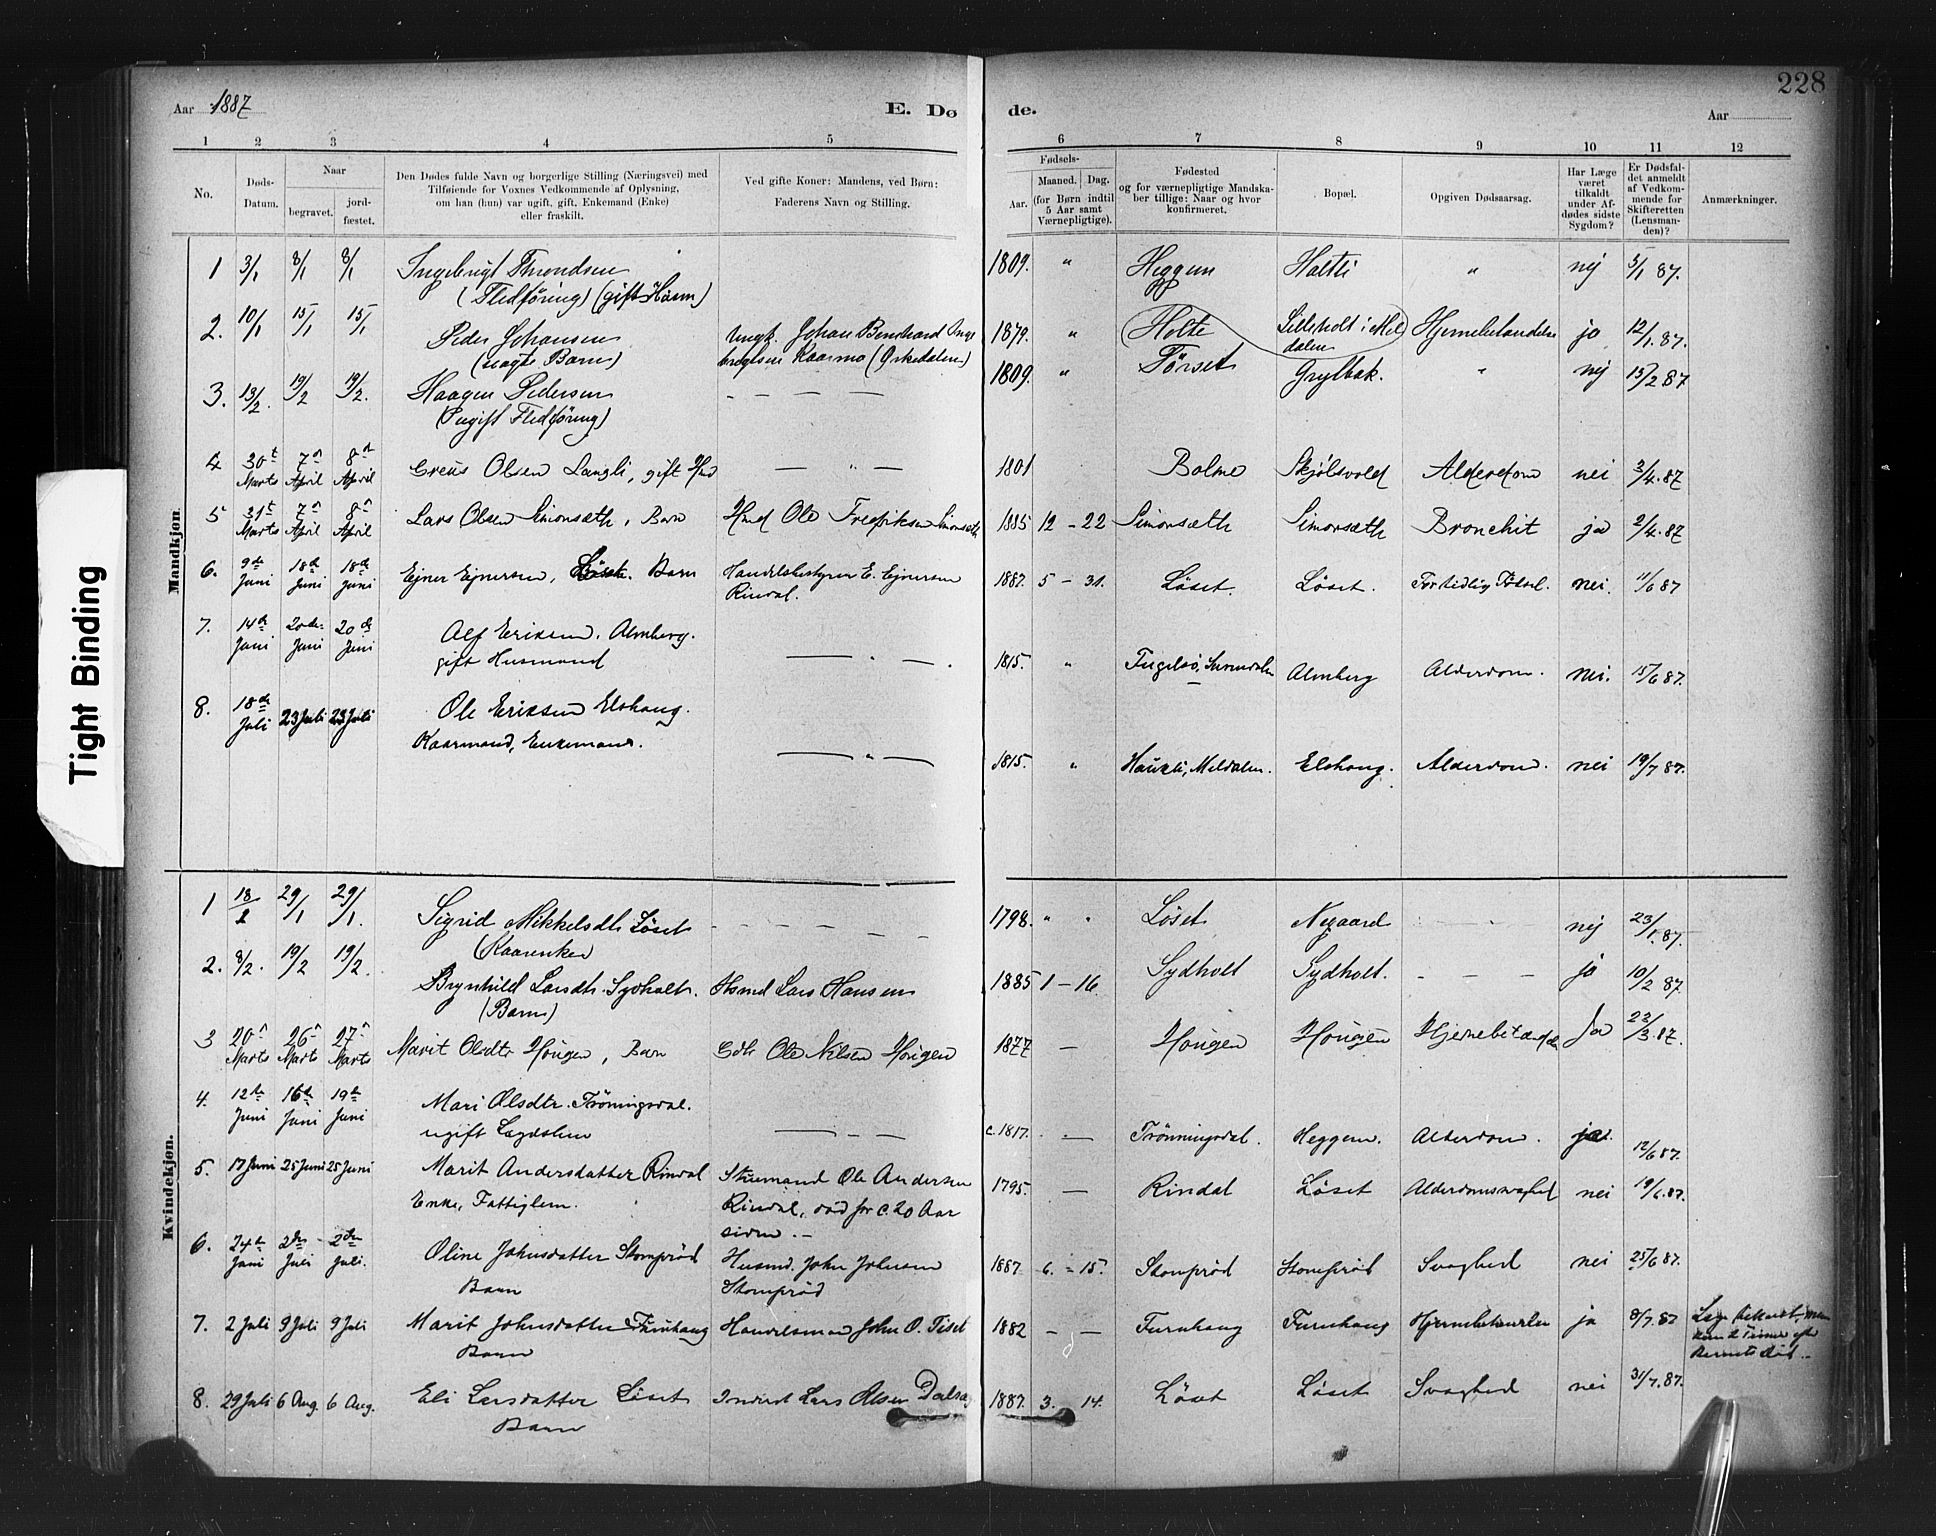 228
Aar 1887
E. Dø
de.
Aar
1 2 3 4 5 6 7 8 9 10 11 12
No.
Døds-
Datum.
Naar
begravet.
jord-
fæstet.
Den Dødes fulde Navn og borgerlige Stilling (Næringsvei) med
Tilføiende for Voxnes Vedkommende af Oplysning,
om han (hun) var ugift, gift, Enkemand (Enke)
eller fraskilt.
Ved gifte Koner: Mandens, ved Børn:
Faderens Navn og Stilling.
Fødsels-
Aar.
Maaned. Dag.
(for Børn indtil
5 Aar samt
Værnepligtige).
Fødested
og for værnepligtige Mandska-
ber tillige: Naar og hvor
konfirmeret.
Bopæl.
Opgiven Dødsaarsag.
Har Læge
været
tilkaldt
under Af-
dødes sidste
Sygdom?
Er Dødsfal-
det anmeldt
af Vedkom-
mende for
Skifteretten
(Lensman-
den)?
Anmærkninger.
Tight Binding
Mandkjøn
1 3/1 8/1 8/1 Ingebrigt Throndsen 1809. " Heggem Haltli " nej 5/1 87.
(Fledføring) (gift Husm)
2. 10/1 15/1 15/1 Peder Johansen Ungk. Johan Bernthard 1879. " Holte Lilleholt i Mel jo 12/1.87.
dalen
(uægte Barn) Kaarmo (Orkedalen)
3. 13/2. 19/2 19/2. Haagen Pedersen - - - - 1809. " Tørset Grylbak. " nej 15/2 87
(Ugift Fledføring)
4 30t Marts 7n April 8n April Olsen Langli, gift — " — 1801 Bolme Skjølsvold Alderdom nei 3/4.87
5 31t Marts 7n April 8n April Lars Olsen Simonsæth, Barn Ole Fredriksen Simonsæth 1885 12 - 22 Simonsæth Simonsæth Bronchit ja 2/4.87
6. 9de Juni 18de Juni 18de Juni Ejner Ejnersen, Barn Handelsbestyrer E. Ejnersen 1887. 5 - 31. Løset. Løset. For tidlig Fødsel. nei. 11/6 87
Rindal.
7. 14de Juni 20de Juni 20de Juni Alf Eriksen. Almberg. — " — . 1815. " Surendalen Almberg Alderdom. nei. 15/6 87.
gift Husmand
8. 18de Juli 23 Juli 23 Juli Ole Eriksen Elshaug.
Kaarmand, Enkemand. — " — 1815. " Meldalen. Elshaug. Alderdom. nei 19/7 87.
Kvindekjøn.
1 18/1 29/1 29/1. Sigrid Mikkelsdt Løset - - - - - 1798. " " Løset Nygaard nej 23/1.87.
(Kaarenke)
2. 8/2. 19/2 19/2. Brynhild Larsdtr. Sydholt. Hsmd Lars Hansen 1885 1 - 16 Sydholt Sydholt. - - - jo 10/2 87.
(Barn)
3 20n Marts 26n Marts 27n Marts Marit Olsdtr Hougen, Barn Gdbr Ole Nilsen Hougen 1877 — Hougen Hougen ja 22/3.87.
4. 12te Juni 16de Juni 19de Juni Mari Olsdtr. Trönningsdal. — - — c. 1817. — Trönningsdal. Heggem. Alderdom. ja. 12/6 87.
ugift Lægdslem
5. 17 Juni 25 Juni 25 Juni Marit Andersdatter Rindal Ole Andersen 1795. — Rindal Løset Alderdomssvaghed nei 19/6.87.
Enke, Fattiglem. Rindal, død for c. 20 Aar
siden. -
6. 24de Juni 2den Juli 2den Juli. Oline Johnsdatter Stomprød Husmd. John Johnsen 1887 6. - 15. Stomprød Stomprød Svaghed nei 25/6 87.
Barn Stomprød
7. 2 Juli 9 Juli 9 Juli Marit Johnsdatter Furuhaug Handelsmand John O. Tiset 1882 — — Furuhaug Furuhaug ja 8/7.87
Barn
8. 29 Juli 6 Aug. 6 Aug. Eli Larsdatter Løset Inderst Lars Olsen 1887. 3. 14. Løset Løset Svaghed nei 31/7.87.
Barn